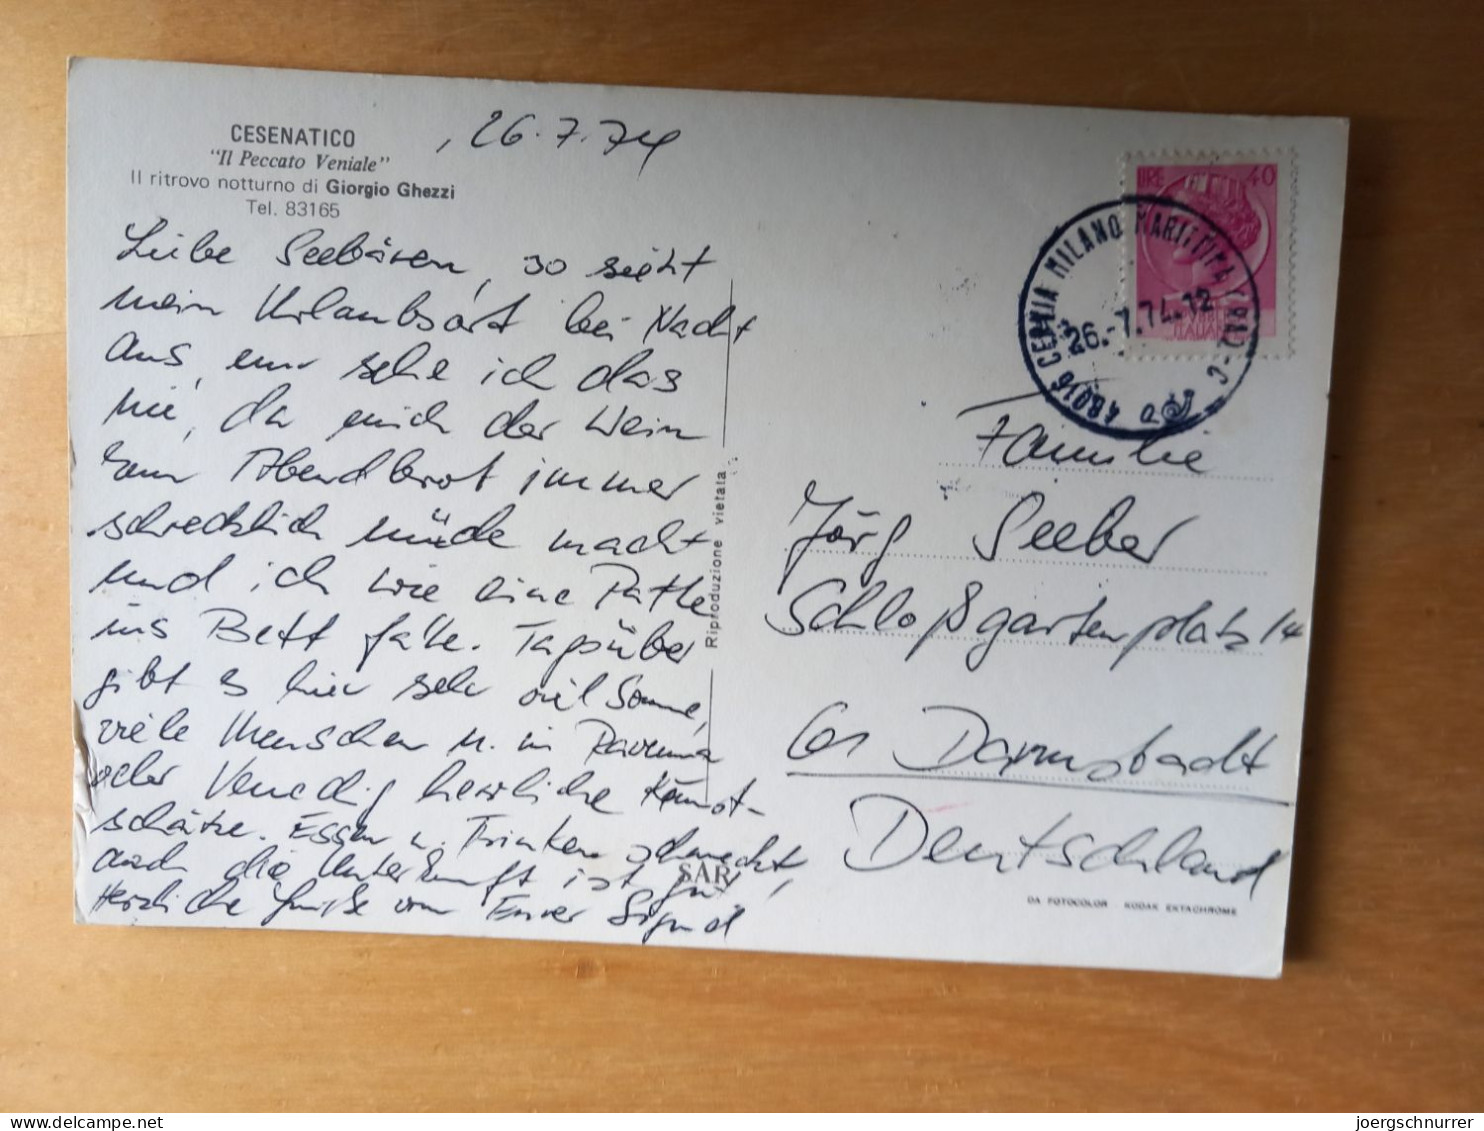 CESENATICO
"Il Peccato Veniale"
Il ritrovo notturno di Giorgio Ghezzi
Tel. 83165
, 26.7.74
Liebe Seebären, so sieht
mein Urlaubsort bei Nacht
aus, nur sehe ich das
nie, da mich der Wein
zum Abendbrot immer
schrecklich müde macht
und ich wie eine Ratte
ins Bett falle. Tagsüber
gibt es hier sehr viel Sonne,
viele Menschen u. in Ravenna
oder Venedig herrliche Kunst-
schätze. Essen u. Trinken schmeckt,
auch die Unterkunft ist gut,
Herzliche Grüße von Eurer Sigrid
Riproduzione vietata
SAR
LIRE 40
ITALIANE
48016 CERVIA MILANO MARITTIMA (RA)-C
26.-7.74.12
Familie
Jörg Seeber
Schloßgartenplatz 14
61 Darmstadt
Deutschland
DA FOTOCOLOR KODAK EKTACHROME
joergschnurrer